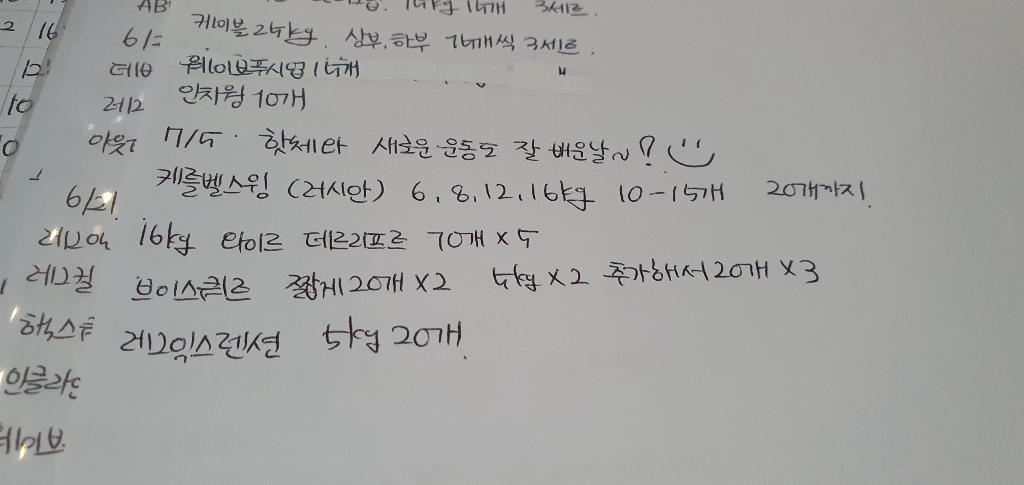 AB 15kg 15개 3세트.
2 16 6/ 케이블 25kg. 상부.하부 15개씩 3세트.
12 데이브 웨이브푸시업 15개
10 레그 인차웜 10개
아웃 7/5. 핫체라 새로운 운동도 잘 배운날~?
6/21 케틀벨스윙 (러시안) 6, 8, 12, 16kg 10-15개 20개까지!
16kg 와이드 데드리프트 10개 x 5
레그컬 브이스쿼트 짧게 20개 x 2 5kg x 2 추가해서 20개 x 3
핵스 레그익스텐션 5kg 20개!
인클라인
데이브